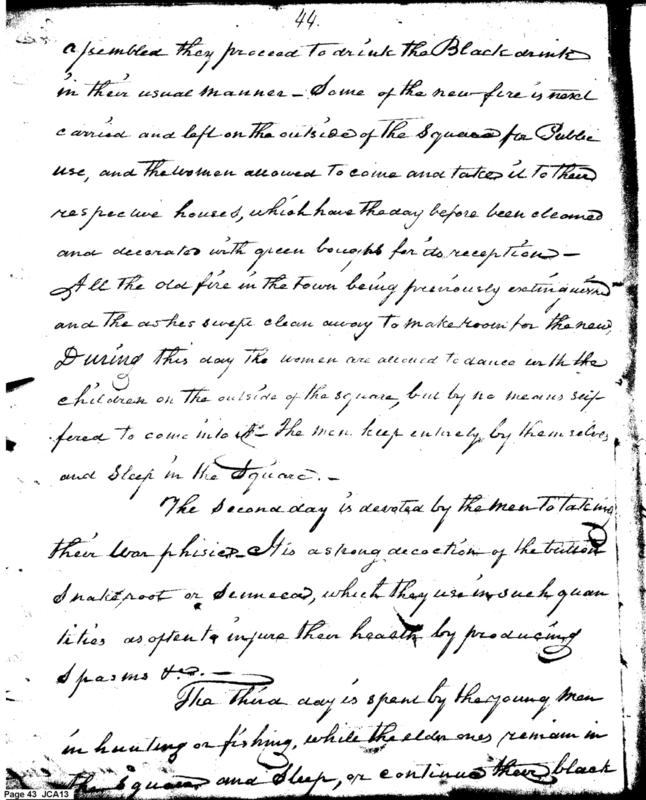 44.
assembled they proceed to drink the Black drink
in their usual manner — Some of the new fire is next
carried and left on the outside of the Square for Public
use, and the women allowed to come and take it to their
respective houses, which have the day before been cleaned
and decorated with green boughs for its reception —
All the old fire in the town being previously extinguished
and the ashes swept clean away to make room for the new,
During this day the women are allowed to dance with the
children on the outside of the square, but by no means suf
fered to come into it — The men keep entirely by themselves
and Sleep in the Square. —
The Second day is devoted by the men to taking
their War phisic — It is a strong decoction of the button
Snake root or Senneca, which they use in such quan
tities as often to injure their health by producing
Spasms &c. —
The third day is spent by the young men
in hunting or fishing, while the elder ones remain in
the Square and Sleep, or continue their black
Page 43 JCA13